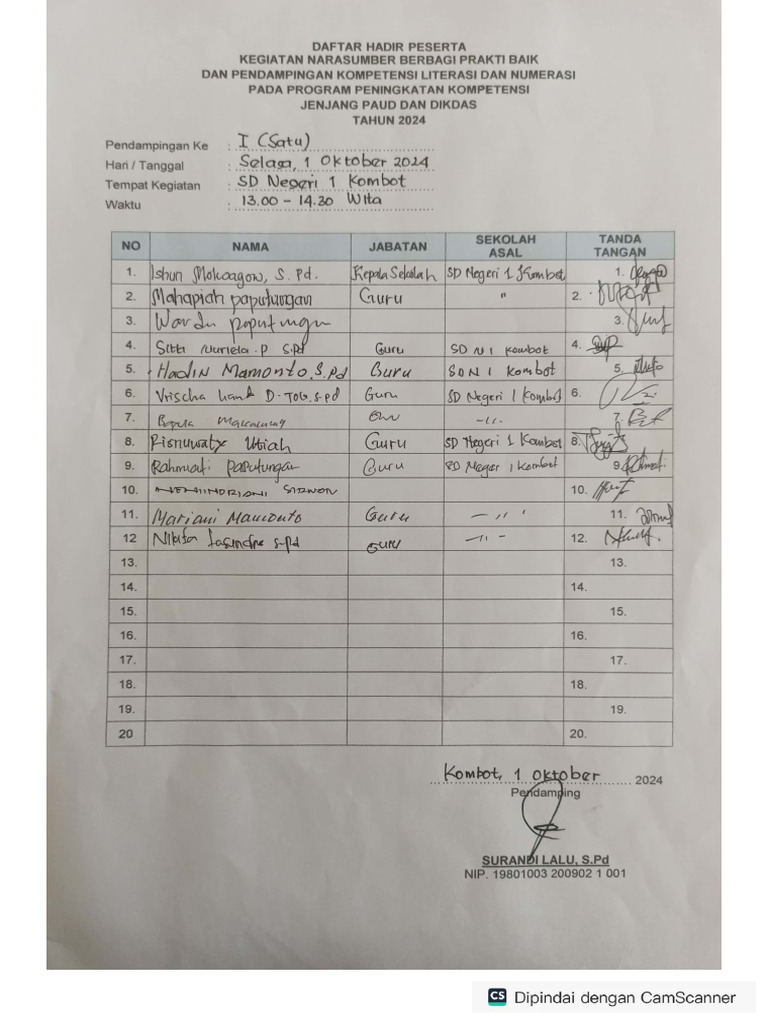 DAFTAR HADIR PESERTA
KEGIATAN NARASUMBER BERBAGI PRAKTI BAIK
DAN PENDAMPINGAN KOMPETENSI LITERASI DAN NUMERASI
PADA PROGRAM PENINGKATAN KOMPETENSI
JENJANG PAUD DAN DIKDAS
TAHUN 2024
Pendampingan Ke : I (Satu)
Hari / Tanggal : Selasa, 1 Oktober 2024
Tempat Kegiatan : SD Negeri 1 Kombot
Waktu : 13.00 - 14.30 Wita
NO NAMA JABATAN SEKOLAH ASAL TANDA TANGAN
1. Mokoagow, S. Pd. Kepala Sekolah SD Negeri 1 Kombot 1.
2. Mahapiah paputungan Guru " 2.
3. 3.
4. Sitti Nurlela . P S.Pd Guru SD N 1 Kombot 4.
5. Hadin Mamonto, S.Pd Guru SDN 1 Kombot 5.
6. Vrischa S.pd Guru SD Negeri 1 Kombot 6.
7. -"- 7.
8. Risnuwaty Utiah Guru SD Negeri 1 Kombot 8.
9. Rahmati Paputungan Guru SD Negeri 1 Kombot 9.
10. 10.
11. Mariani Mamonto Guru - " - 11.
12 Nikita S.Pd Guru - " - 12.
13. 13.
14. 14.
15. 15.
16. 16.
17. 17.
18. 18.
19. 19.
20 20.
Kombot, 1 Oktober 2024
Pendamping
SURANDI LALU, S.Pd
NIP. 19801003 200902 1 001
CS Dipindai dengan CamScanner